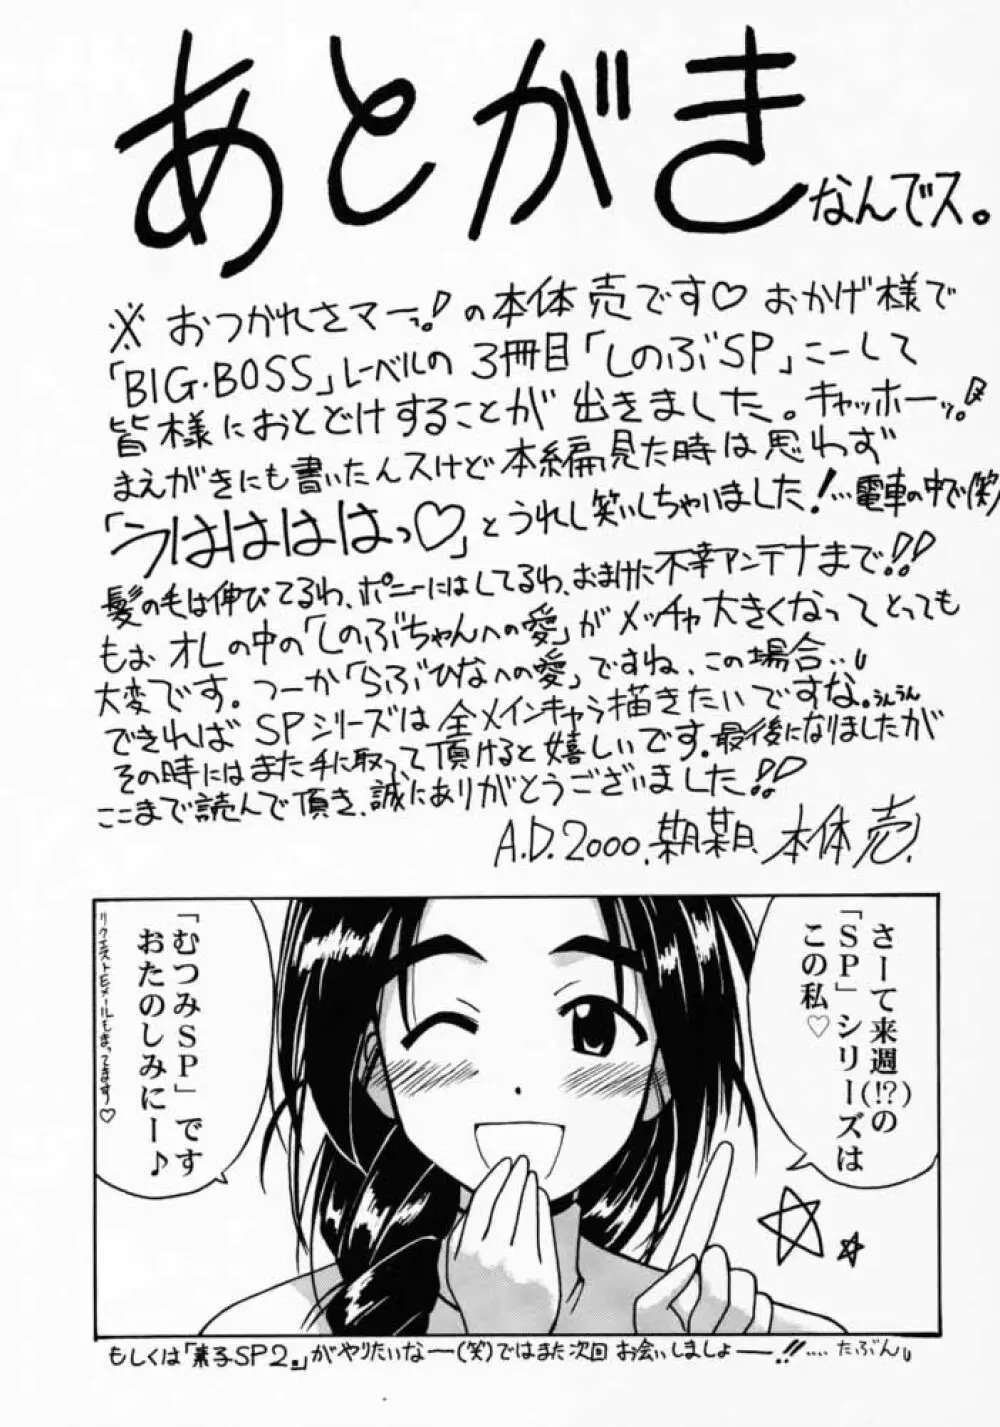 あとがき
なんでス。
※おつかれさマーっ!の本体売です♡おかげ様で
「BIG・BOSS」レーベルの3冊目「しのぶSP」こーして
皆様におとどけすることが出きました。キャッホーッ!
まえがきにも書いたんスけど本編見た時は思わず
「うはははは っ♡」とうれし笑いしちゃいました!…電車の中で(笑)
髪の毛は伸びてるわ、ポニーにはしてるわ、おまけに不幸アンテナまで!!
もおオレの中の「しのぶちゃんへの愛」がメッチャ大きくなってとっても
大変です。つーか「らぶひなへの愛」ですね、この場合…。
できればSPシリーズは全メインキャラ描きたいですな。うんうん
その時にはまた手に取って頂けると嬉しいです。最後になりましたが
ここまで読んで頂き、誠にありがとうございました!!
A.D.2000.某月某日 本体売.
さーて来週(!?)の
「SP」シリーズは
この私♡
「むつみSP」です
おたのしみにー♪
リクエストEメールもまってます♡
もしくは「素子SP2。」がやりたいなー(笑)ではまた次回お会いしましょー!!……たぶん。